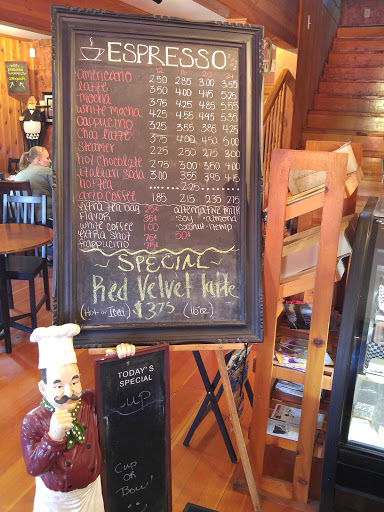 ESPRESSO
12 16 20 24
americano 2.50 2.85 3.00 3.55
latte 3.50 4.00 4.45 5.25
Mocha 3.75 4.25 4.85 5.55
white Mocha 4.25 4.55 4.95 5.35
Cappuccino 3.25 3.55 3.85 4.25
Chai latte 3.75 4.00 4.50 5.00
Steamer 2.25 2.50 2.75 3.00
hot Chocolate 2.75 3.00 3.50 4.00
italian Soda 3.00 3.55 3.95 4.15
hot tea 2.25
drip Coffee 1.85 2.15 2.35 2.75
extra tea bag 25¢ alternative milk
flavor 35¢ -Soy -almond
white coffee 100¢ -Coconut -hemp
extra shot 75¢ 50¢
frappuccino
SPECIAL
Red Velvet latte
(Hot or Iced) $3.75 (16oz)
TODAY'S
SPECIAL
Cup
or
Bowl